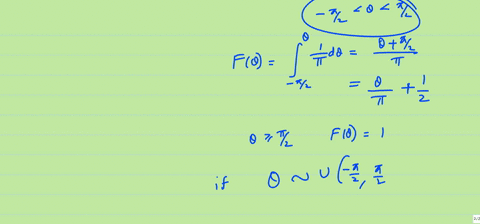 -π/2 < θ < π/2
F(θ) = ∫_{-π/2}^{θ} 1/π dθ = (θ + π/2)/π
= θ/π + 1/2
θ ≥ π/2 F(θ) = 1
if θ ~ U(-π/2, π/2